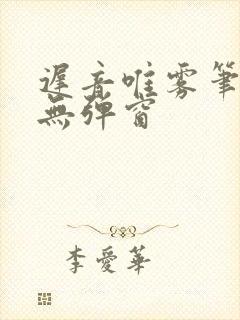 遲音唯雾筆
無彈窗
李愛華